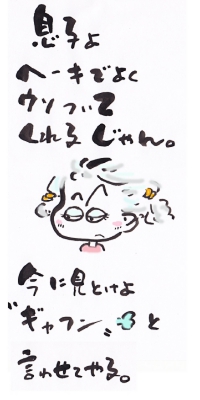 息子よ
ヘーキでよく
ウソついて
くれるじゃん。
今に見とけよ
"ギャフン"と
言わせてやる。